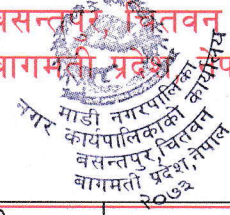 बसन्तपुर, चितवन
बागमती प्रदेश, नेपाल
माडी नगरपालिका
नगर कार्यपालिकाको कार्यालय
बसन्तपुर, चितवन
बागमती प्रदेश, नेपाल
२०७३